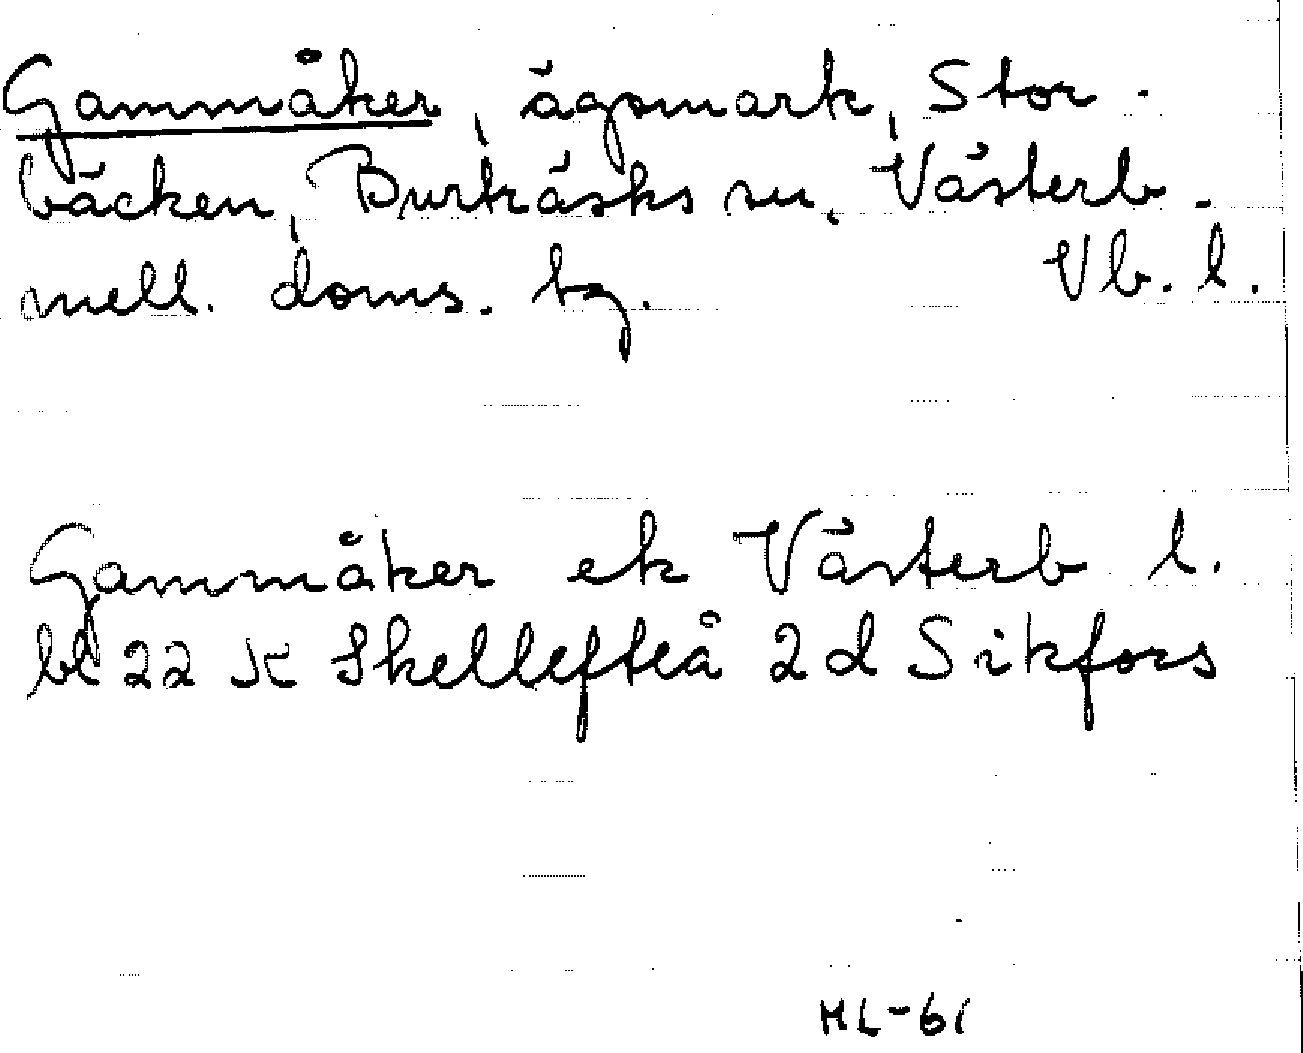 Gammåker, ägomark, Stor-
bäcken, Burträsks sn, Västerb.
mell. doms. tg. Vb. l.
Gammåker ek Västerb l.
bl 22 K Skellefteå 2 d Sikfors
HL-61